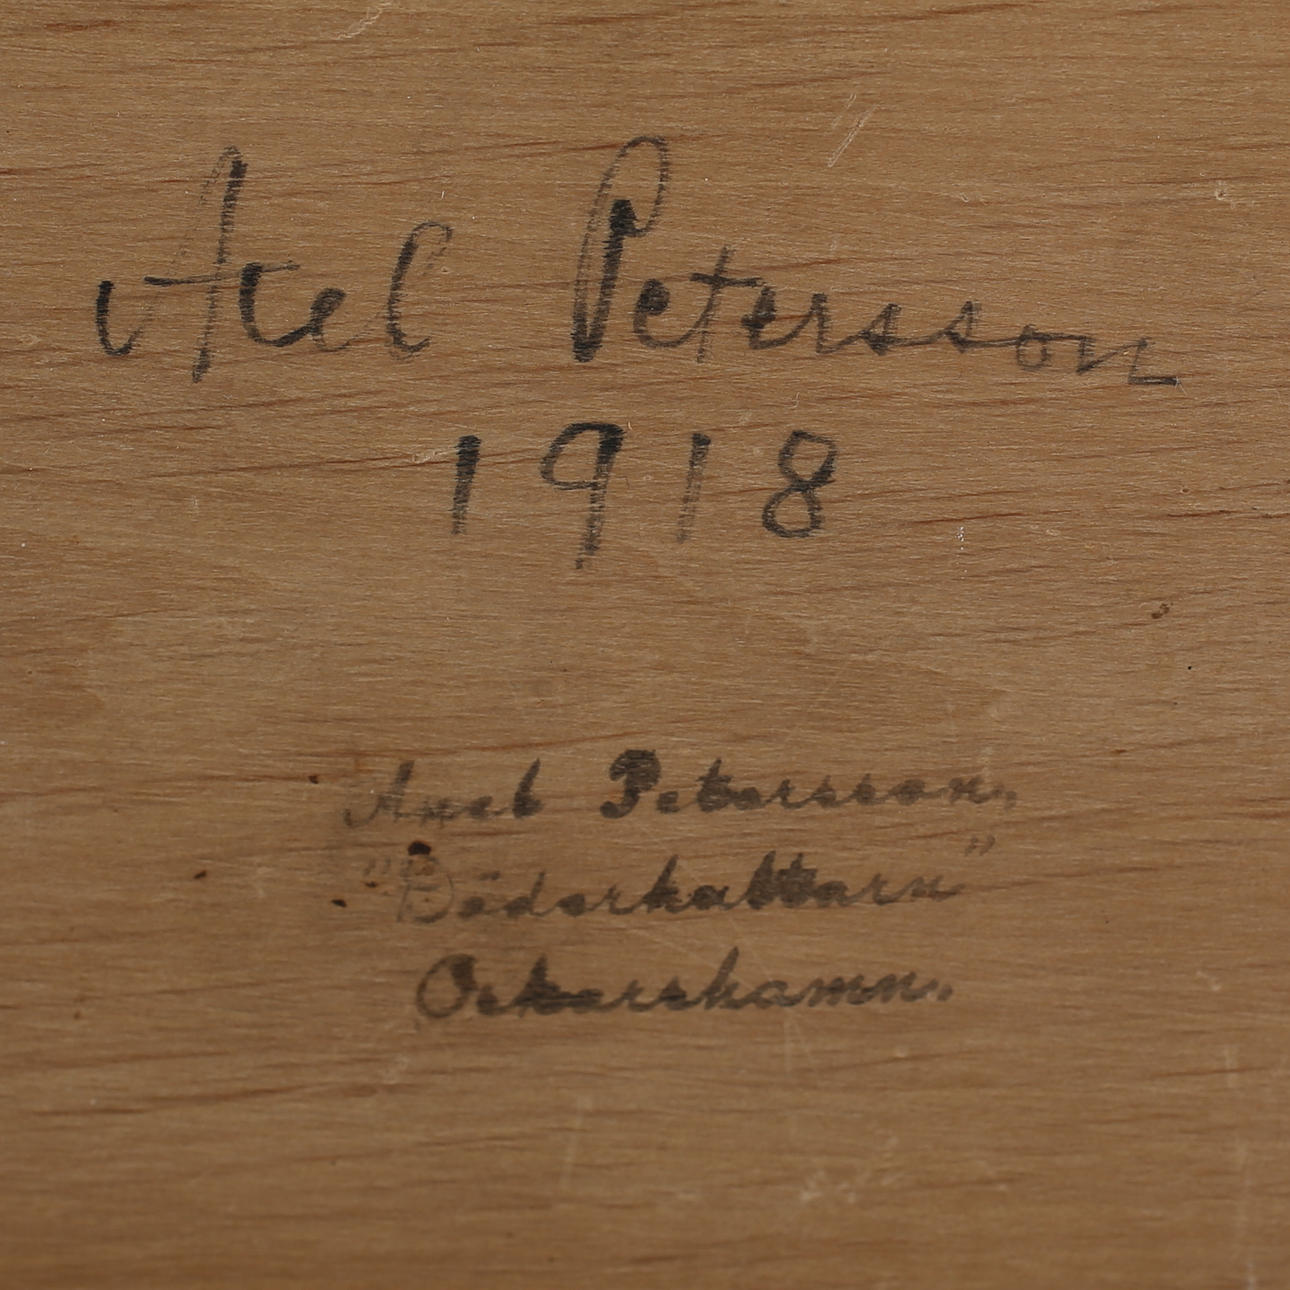 Axel Petersson
1918
Axel Petersson,
"Döderhultarn"
Oskarshamn.